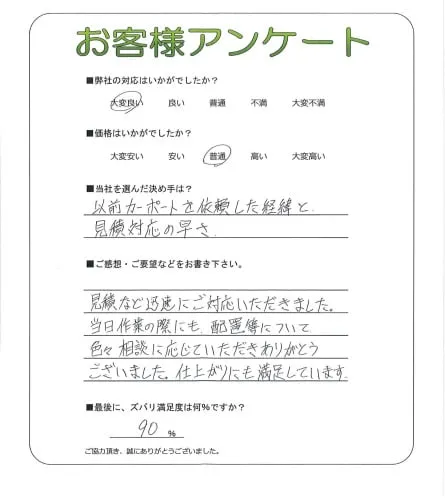 お客様アンケート
■弊社の対応はいかがでしたか？
大変良い 良い 普通 不満 大変不満
■価格はいかがでしたか？
大変安い 安い 普通 高い 大変高い
■当社を選んだ決め手は？
以前カーポートを依頼した経緯と、
見積対応の早さ
■ご感想・ご要望などをお書き下さい。
見積など迅速にご対応いただきました。
当日作業の際にも、配置等について
色々相談に応じていただきありがとう
ございました。仕上がりにも満足しています。
■最後に、ズバリ満足度は何%ですか？
90 %
ご協力頂き、誠にありがとうございました。